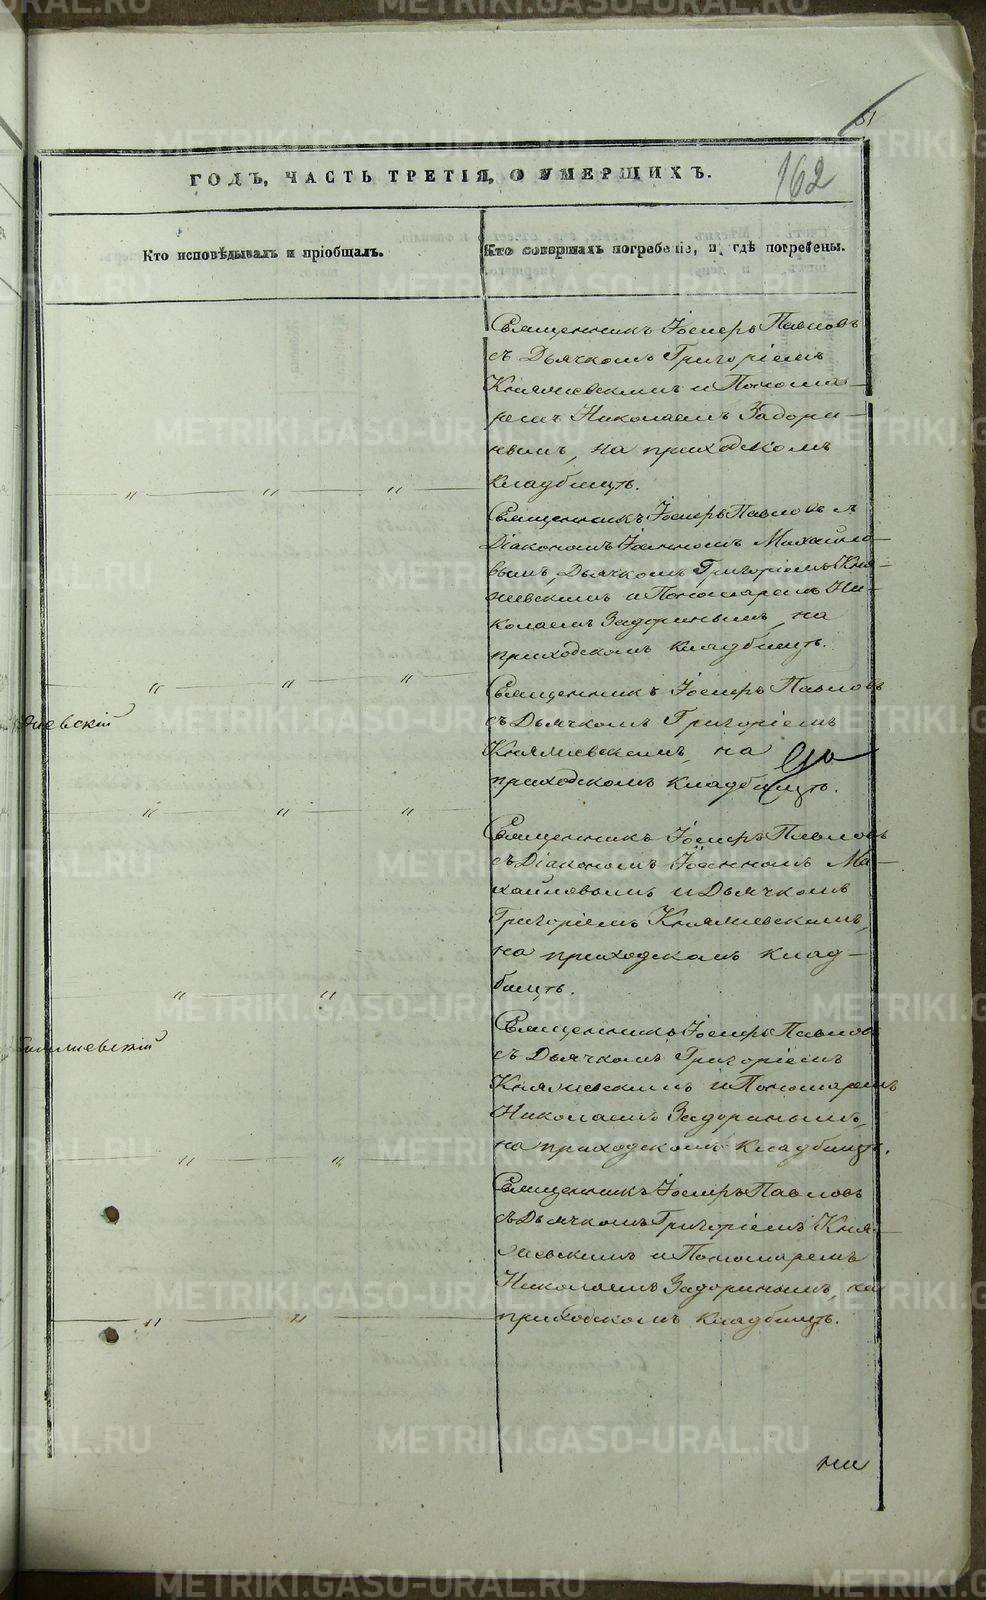 METRIKI.GASO-URAL.RU
61
ГОДЪ, ЧАСТЬ ТРЕТІЯ, О УМЕРШИХЪ.
162
Кто исповѣдывалъ и пріобщалъ.
Кто совершалъ погребеніе, и гдѣ погребены.
Священникъ Іосифъ Павловъ
съ Дьячкомъ Григоріемъ
Княжевскимъ и Понома-
ремъ Николаемъ Задори-
нымъ, на приходскомъ
кладбищѣ.
Священникъ Іосифъ Павловъ съ
Діакономъ Іоанномъ Михайло-
вымъ, Дьячкомъ Григоріемъ Кня-
жевскимъ и Пономаремъ Ни-
колаемъ Задоринымъ, на
приходскомъ кладбищѣ.
Священникъ Іосифъ Павловъ
съ Дьячкомъ Григоріемъ
Княжевскимъ, на
приходскомъ кладбищѣ.
Священникъ Іосифъ Павловъ
съ Діакономъ Іоанномъ Ми-
хайловымъ и Дьячкомъ
Григоріемъ Княжевскимъ,
на приходскомъ клад-
бищѣ.
Священникъ Іосифъ Павловъ
съ Дьячкомъ Григоріемъ
Княжевскимъ и Пономаремъ
Николаемъ Задоринымъ,
на приходскомъ кладбищѣ.
Священникъ Іосифъ Павловъ
съ Дьячкомъ Григоріемъ Кня-
жевскимъ и Пономаремъ
Николаемъ Задоринымъ, на
приходскомъ кладбищѣ.